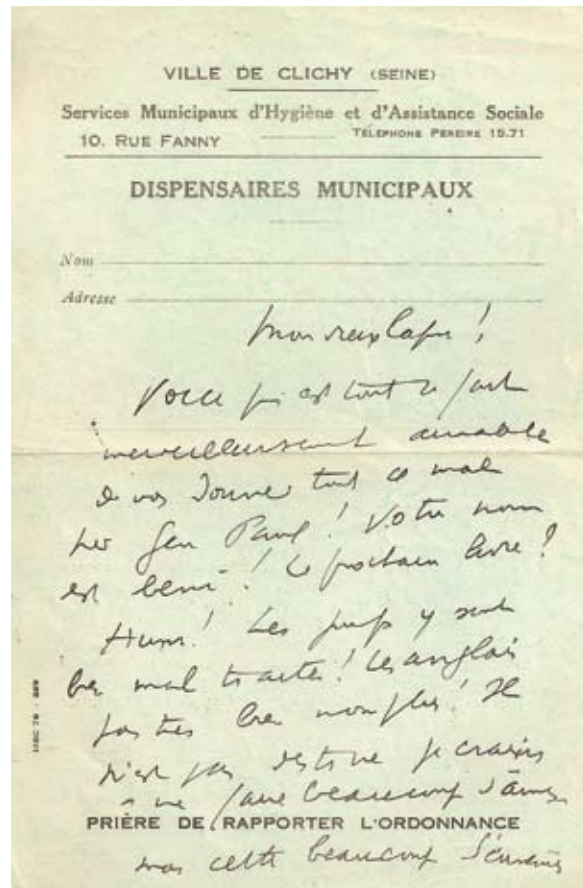 VILLE DE CLICHY (SEINE)
Services Municipaux d'Hygiène et d'Assistance Sociale
10. RUE FANNY TÉLÉPHONE PEREIRE 15.71
DISPENSAIRES MUNICIPAUX
Nom
Adresse
Mon
Voici qui est tout à fait
merveilleusement aimable
de vos donner tout ce mal
Gen Paul! Votre nom
est beni! Le prochain livre?
Hum! Les y sont
mal traités! Les anglais
pas très non plus! Il
n'est pas destiné je crains
à me faire beaucoup d'amis
PRIÈRE DE RAPPORTER L'ORDONNANCE
mais cette beaucoup d'ennemis